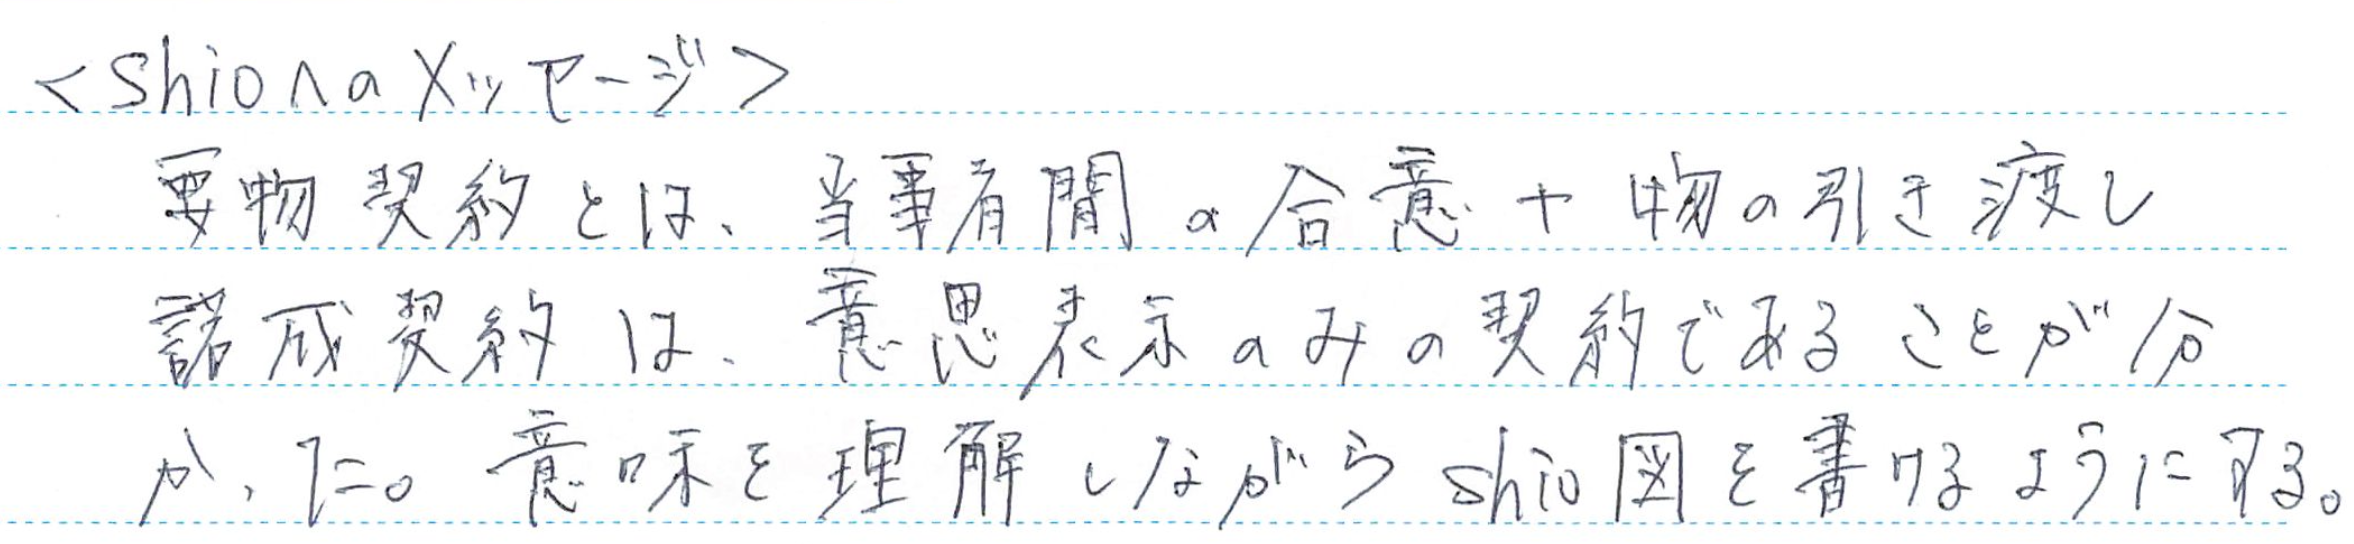 <shioへのメッセージ>
要物契約とは、当事者間の合意+物の引き渡し
諾成契約は、意思表示のみの契約であることが分
かった。意味を理解しながらshio図を書けるようにする。